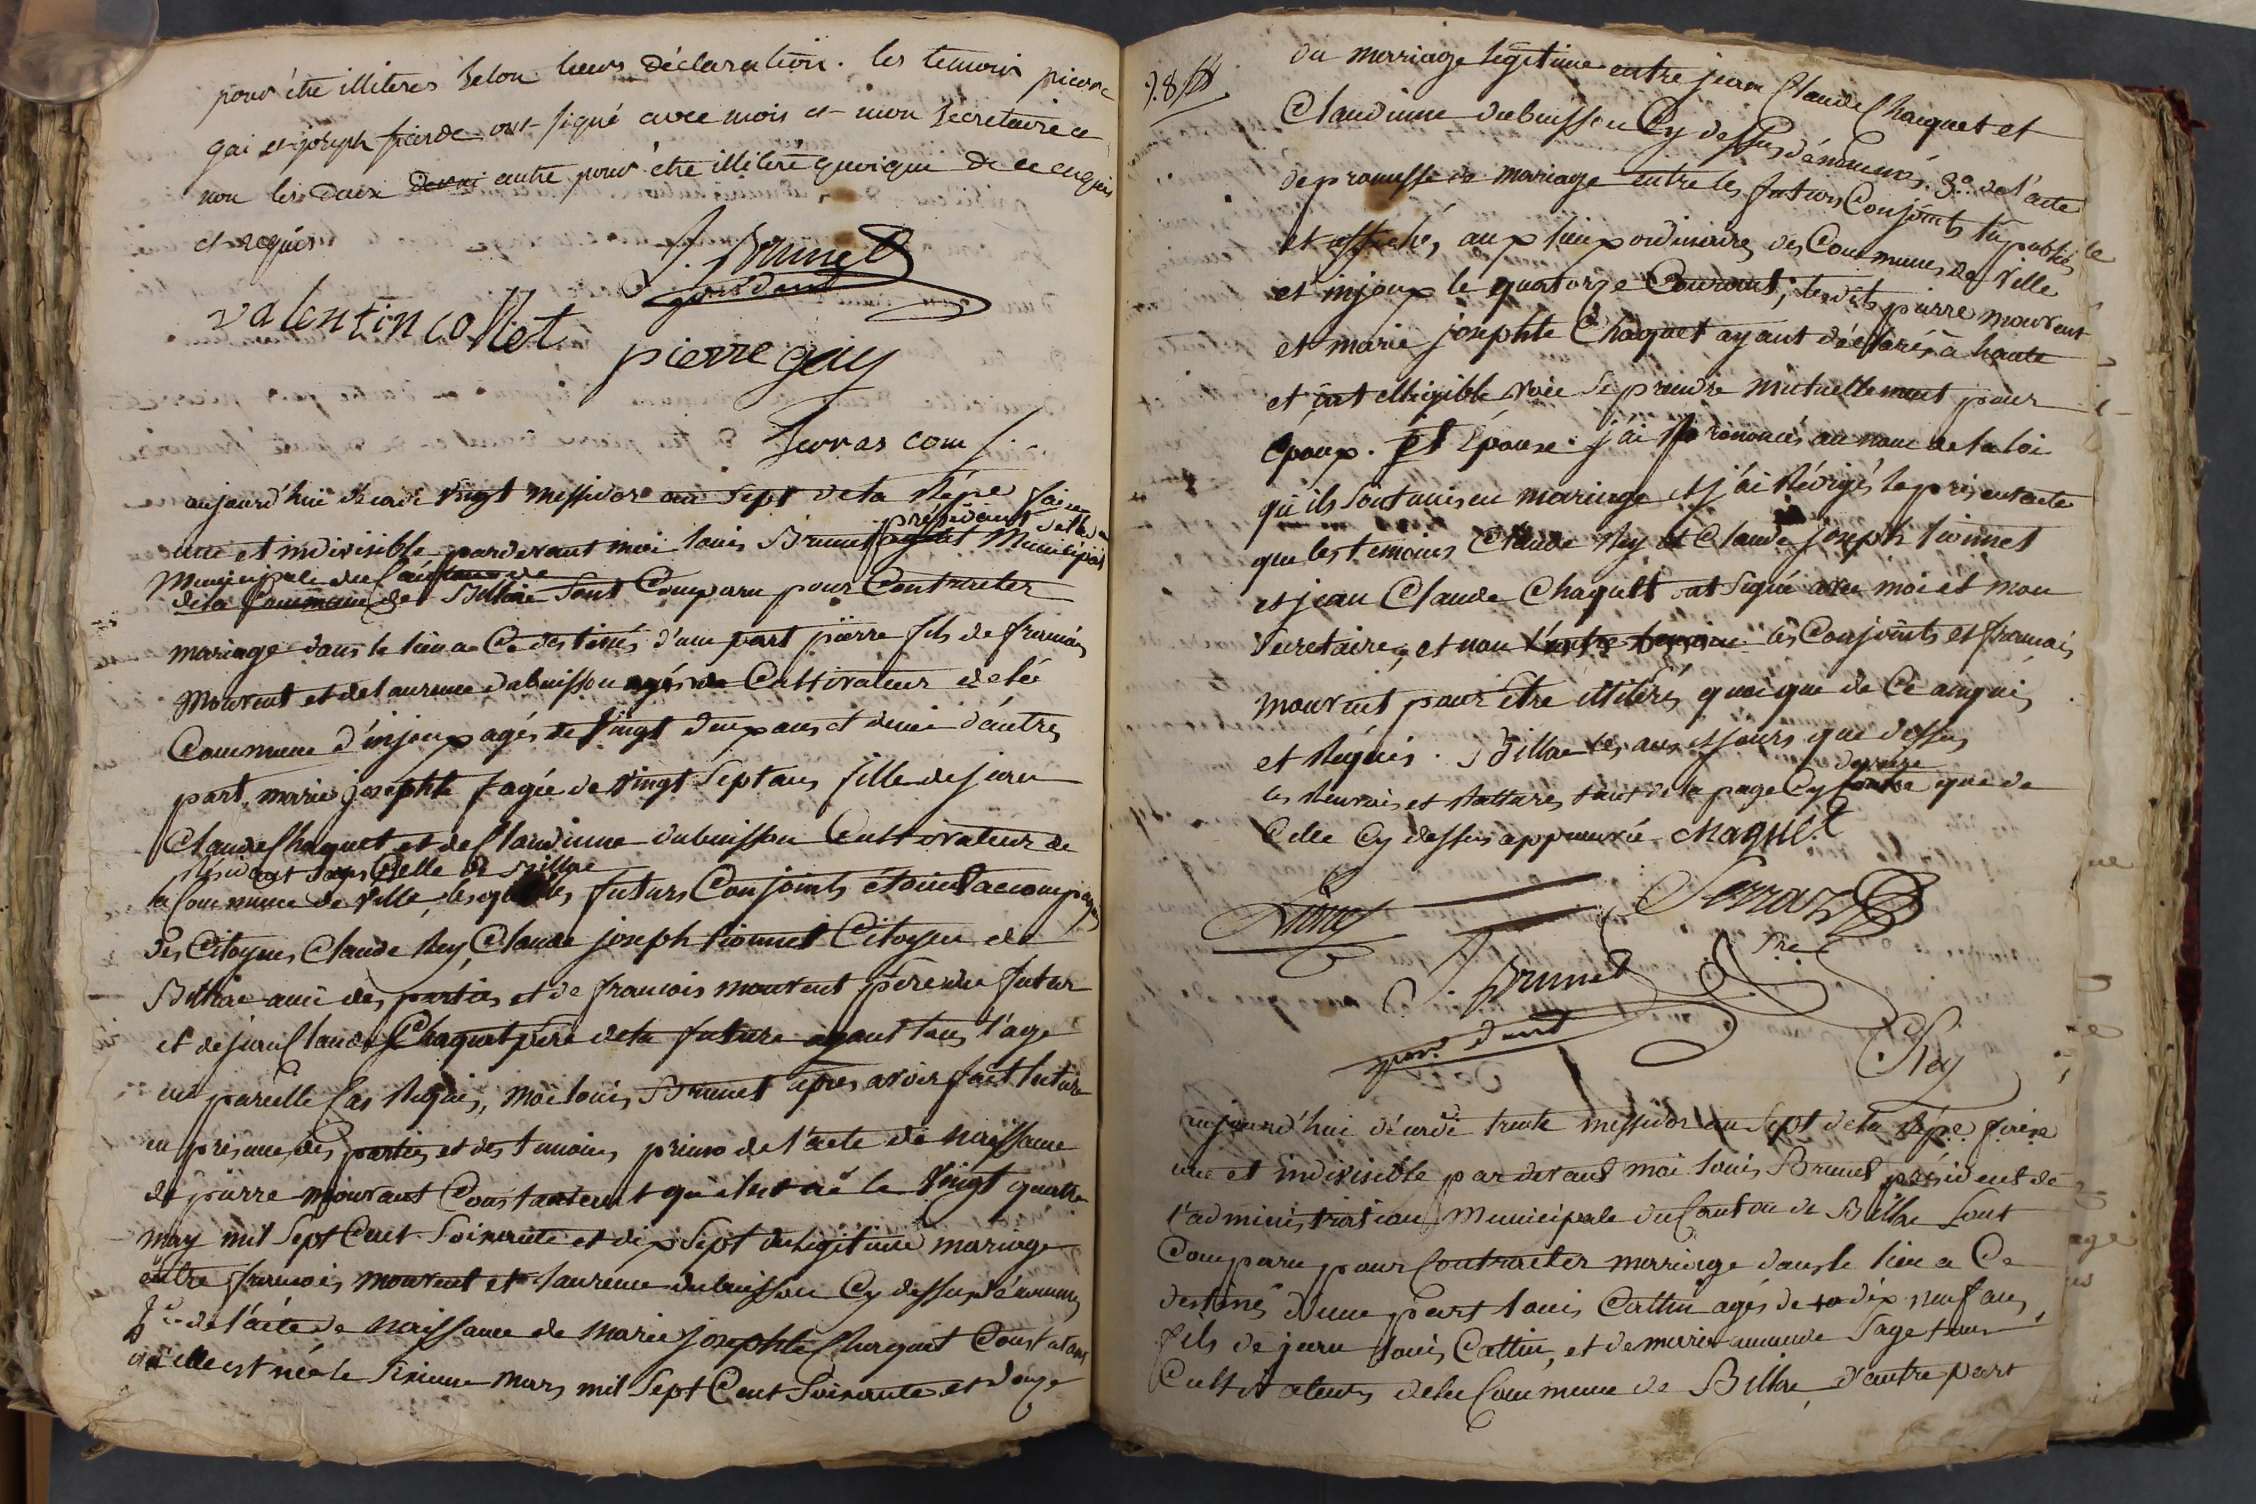 pour être illiteres selon leurs déclaration. les temoins pierre
gai et joseph ont signé avec mois et mon secretaire ce
non les deux devni autre pour être illiteré quoique de ce enquis
et requis
J. Brunet
president
valentin collet
pierre gay
Servas com
aujourd'hui décade vingt messidor an sept de la Répe faise
une et indivisible pardevant moi louis Brunet agent municipal
président de l'adm
Municipale du Canton de
de la Commune de Billiae sont Comparu pour Contracter
mariage dans le lieu a Ce destinés d'une part pierre fils de francois
Mourent et de laurence dubuisson agés de Cultivateur de la
Commune d'injoux agés de vingt deux ans et demie d'autres
part, marie josephte fagée de vingt sept ans fille de jean
Claude Chaquet et de Claudinne dubuisson Cultivateur de
Résidant dans Celle de Billiae
la Commune de Ville, lesquelles futurs Conjoints étoient accompagnés
des Citoyens Claude Rey, Claude joseph lionnet Citoyen de
Billiae amie des parties et de francois mourent père du futur
et de jean Claude Chaquet père de la future ayant tous l'age
en pareille Cas Réquis, moi louis Brunet apres avoir fait lecture
en présence des parties et des temoins primo de l'acte de naissance
de pierre mourant Constantemt qu'il est né le vingt quatre
may mil sept Cent soixante et dix sept du legitime mariage
entre francois mourent et laurence dubuisson Cy dessus dénommés
2e de l'acte de naissance de marie josephte Chaquet Constatant
qu'elle est née le sixieme mars mil sept Cent soixante et douze
78
du marriage legitime entre jean Claude Chaquet et
Claudinne dubuisson Cy dessus dénommés. 3o de l'acte
de promesse de mariage entre les futurs Conjoints lu publié
et affiché, aux lieux ordinaires des Communes de Ville
et injoux le quatorze Courant; lesdits pierre mourent
et marie josephte Chaquet ayant déclarés à haute
et intelligible voie se prendre mutuellement pour
époux. Et épouse. j'ai prononcés au nom de la loi
qu'ils sont unis en marriage et j'ai Rédigés le présent acte
que les temoins Claude Rey et Claude joseph lionnet
et jean Claude Chaquet ont signé avec moi et mon
secretaire, et non l'autre temoin les Conjoints et francois
mourent pour être illiteré, quoique de Ce enquis
et Réquis. Billiae les ans et jours que dessus
les Renvois et Ratture, tant de la page Cy contre que de
derriere
Celle Cy dessus approuvée Chaquet
Lionet
Serraz
Sre
J. Brunet
president
Rey
aujourd'hui décadi trente messidor an sept de la Répe frcise
une et indivisible par devant moi louis Brunet président de
l'administration Municipale du Canton de Billiae sont
Comparu pour Contracter marriage dans le lieu a Ce
destinés d'une part louis Cattin agés de dix neuf ans,
fils de jean louis Cattin, et de marie
Cultivateurs de la Commune de Billiae, d'autre part